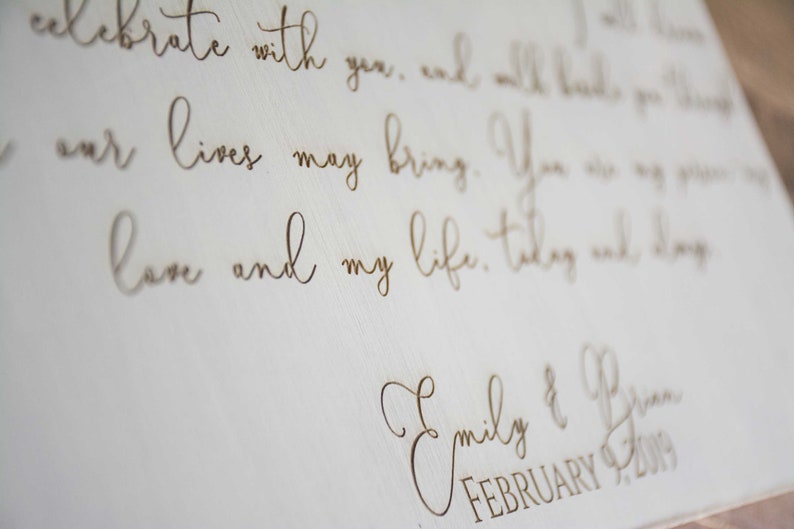 I will
celebrate with you, and walk beside you through
our lives may bring. You are my
love and my life, today and always.
Emily & Brian
FEBRUARY 9, 2019